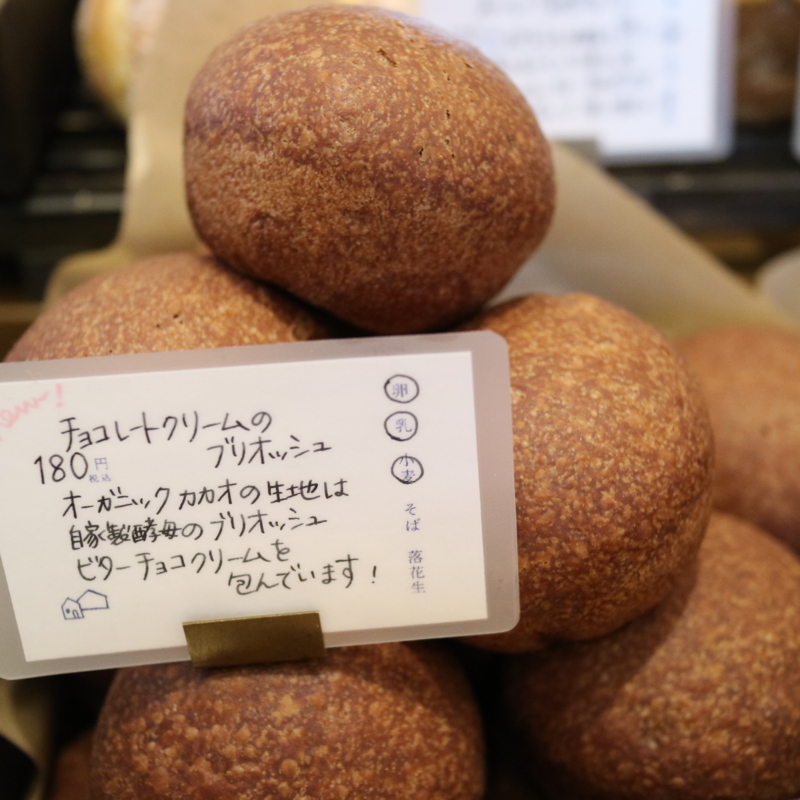 new!
チョコレートクリームの
ブリオッシュ
180円
税込
オーガニックカカオの生地は
自家製酵母のブリオッシュ
ビターチョコクリームを
包んでいます！
卵
乳
小麦
そば
落花生